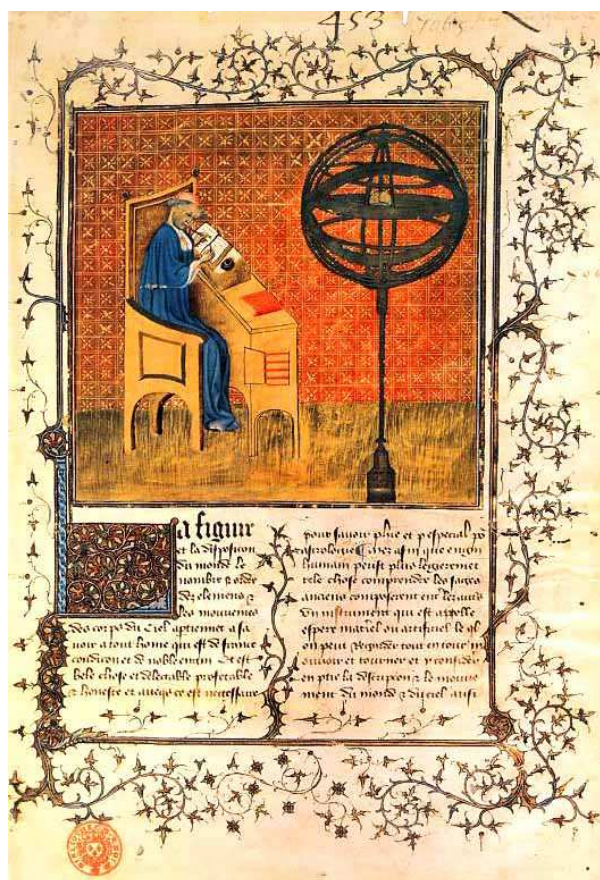 453 7065
La figure
et la disposicion
du monde le
nombre & ordre
des elemens &
les mouvemens
des corps du ciel aptiennet a sa
voir a tout home qui est de franche
condicion et de noble engin Et est
bele chose et delectable profetable
& honeste et aveqs ce est necessaire
pour savoir phie et p especial po
astrologie afin que engin
humain peust plus legierement
tele chose comprendre les sages
anciens composerent
un instrument qui est appelle
espere materiel ou artificiel
on peut regarder tout entour
mouvoir et tourner et considerer
la descripcion & le mouve
ment du monde & du ciel aussi